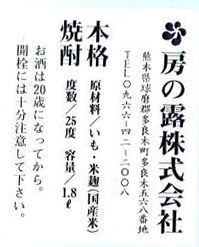 房の露株式会社
熊本県球磨郡多良木町多良木五六八番地
TEL〇九六六―四二―二〇〇八
本格焼酎
原材料/いも・米麹(国産米)
度数/25度 容量/1.8ℓ
お酒は20歳になってから。
開栓には十分注意して下さい。